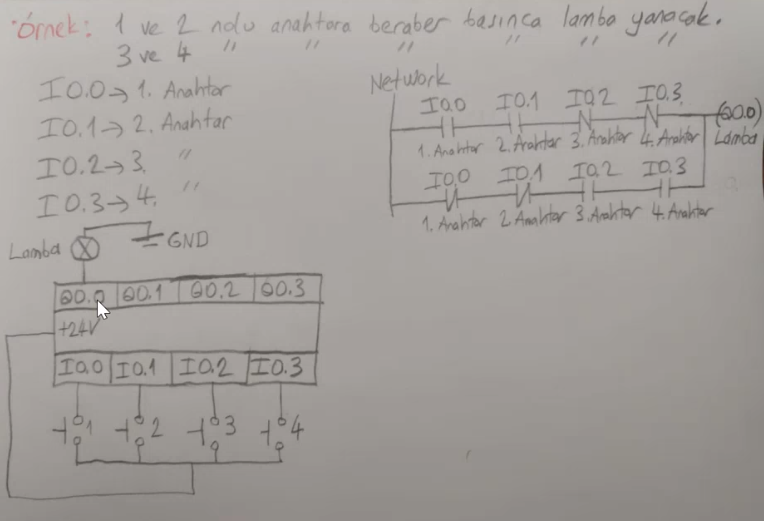 Örnek: 1 ve 2 nolu anahtara beraber basınca lamba yanacak.
3 ve 4 " " " " " "
I0.0→ 1. Anahtar
I0.1→ 2. Anahtar
I0.2→ 3. "
I0.3→ 4. "
Network
I0.0 I0.1 I0.2 I0.3 (Q0.0)
1. Anahtar 2. Anahtar 3. Anahtar 4. Anahtar Lamba
I0.0 I0.1 I0.2 I0.3
1. Anahtar 2. Anahtar 3. Anahtar 4. Anahtar
Lamba GND
Q0.0 Q0.1 Q0.2 Q0.3
+24V
I0.0 I0.1 I0.2 I0.3
1 2 3 4